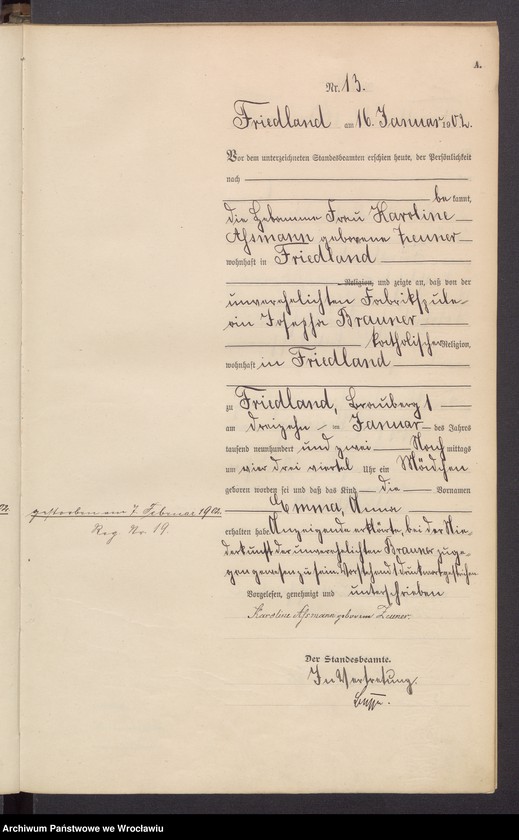 A.
Nr. 13.
Friedland am 16. Januar 1902.
Vor dem unterzeichneten Standesbeamten erschien heute, der Persönlichkeit
nach
be kannt,
die Hebamme Frau Karoline
Aßmann geborene Zeuner
wohnhaft in Friedland
Religion, und zeigte an, daß von der
unverehelichten Fabrikspule-
rin Josepha Brauner
katholischer Religion,
wohnhaft in Friedland
zu Friedland, Brauberg 1
am dreizehn ten Januar des Jahres
tausend neunhundert und zwei Nach mittags
um vier drei viertel Uhr ein Mädchen
geboren worden sei und daß das Kind die Vornamen
gestorben am 7. Februar 1902.
Reg Nr. 19.
Emma, Anna
erhalten habe. Anzeigende erklärte, bei der Nie-
derkunft der unverehelichten Brauner zuge-
gen gewesen zu sein. Vorstehend 1 Druckwort gestrichen
Vorgelesen, genehmigt und unterschrieben
Karoline Aßmann geborene Zeuner.
Der Standesbeamte.
In Vertretung.
Archiwum Państwowe we Wrocławiu